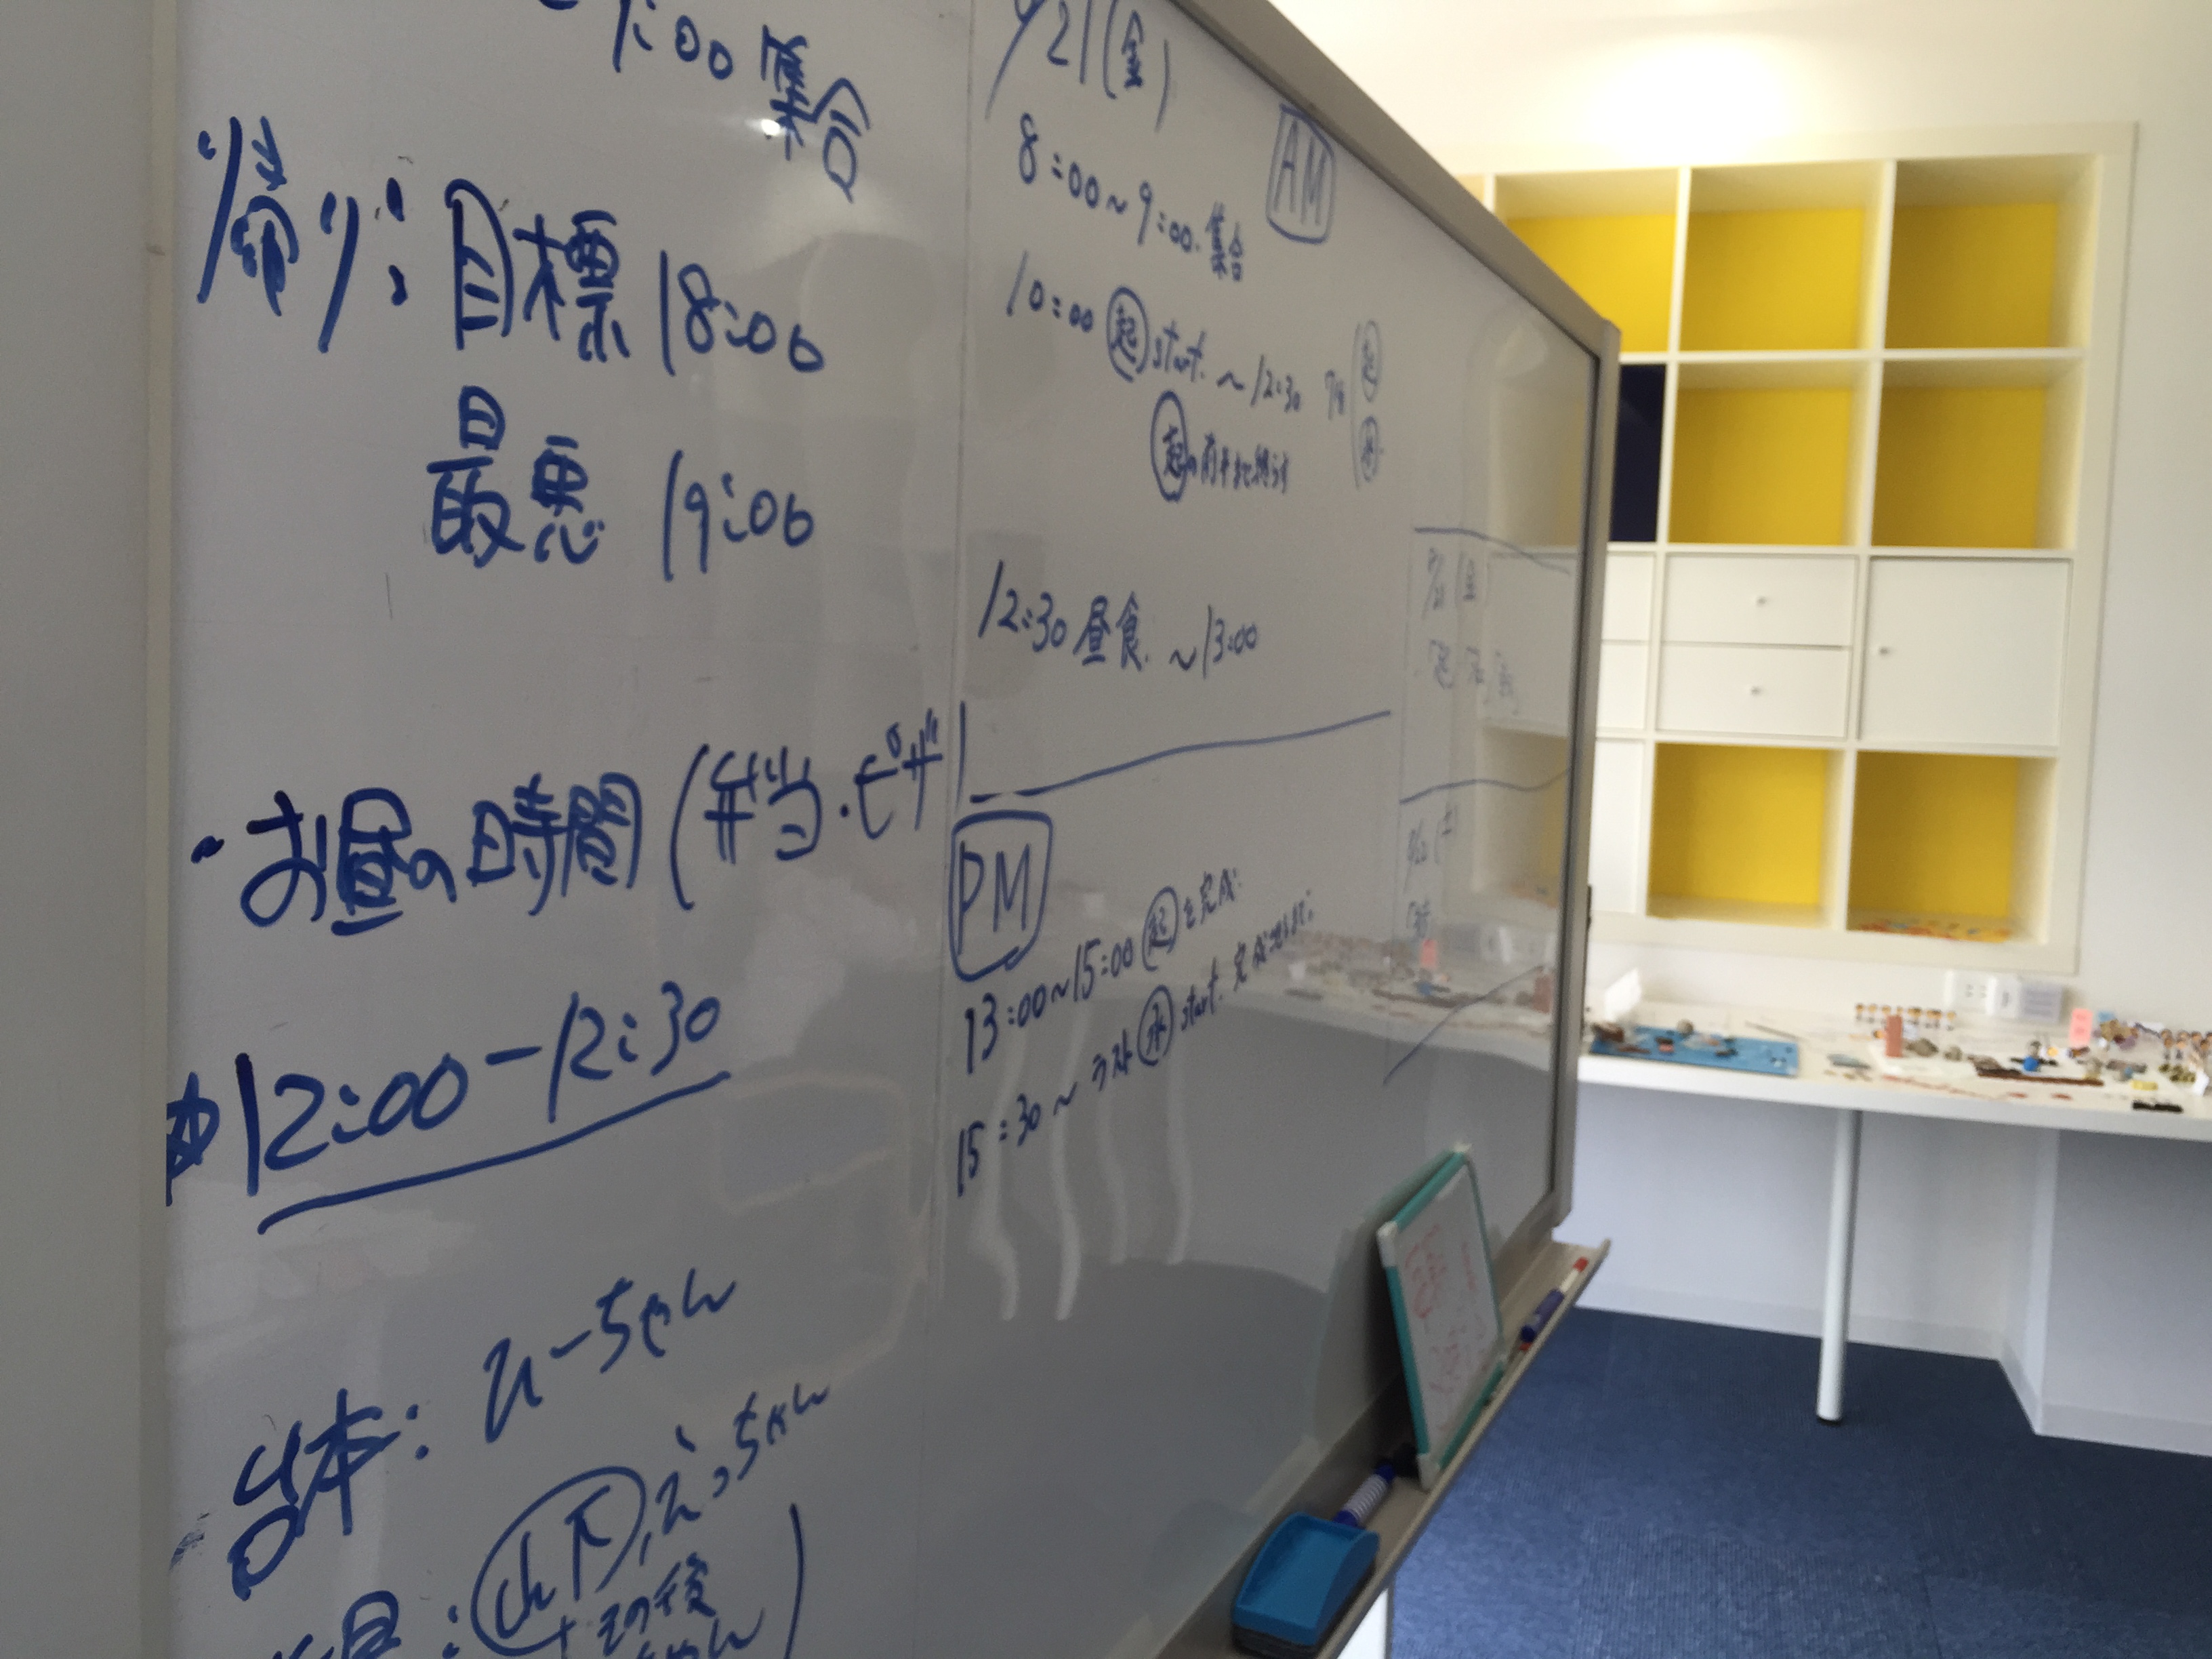 :00 集合
帰り: 目標 18:00
最悪 19:00
・お昼の時間 (弁当・ピザ)
12:00-12:30
台本: ひーちゃん
山下, えっちゃん
その後
/21(金)
AM
8:00~9:00. 集合
10:00 起 start. ~12:30
起の前半まで終らす
12:30 昼食. ~13:00
PM
13:00~15:00 起を完成.
15:30~ ラスト 承 start. 完成